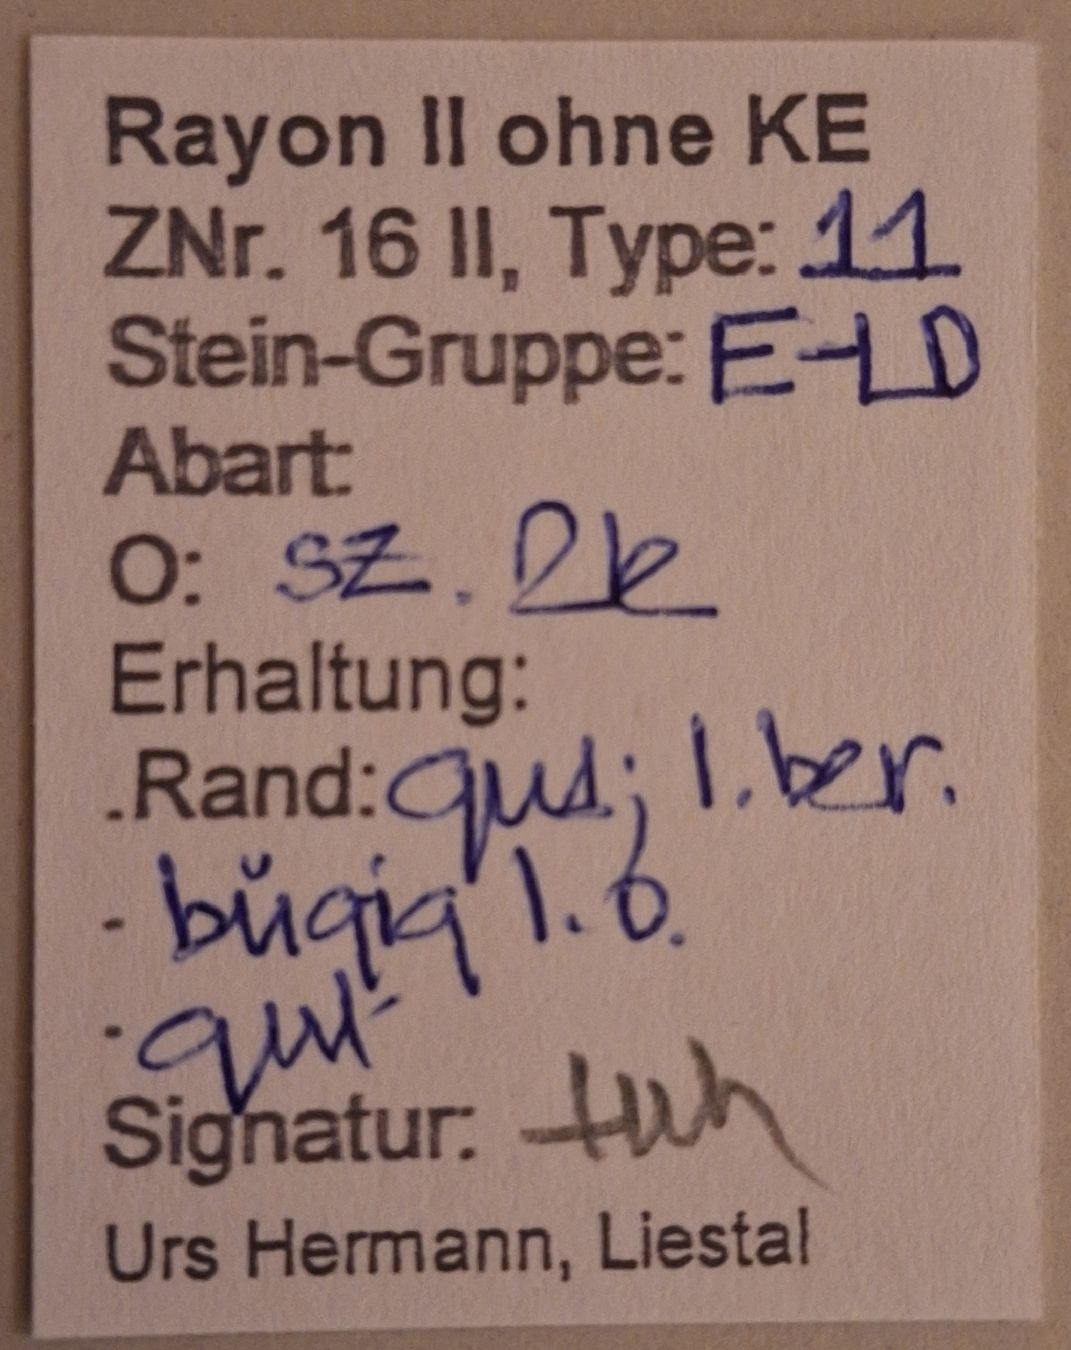 Rayon II ohne KE
ZNr. 16 II, Type: 11
Stein-Gruppe: E-LD
Abart:
O: sz. PK
Erhaltung:
.Rand: gut; l. ber.
- bügig l. o.
- gut
Signatur:
Urs Hermann, Liestal